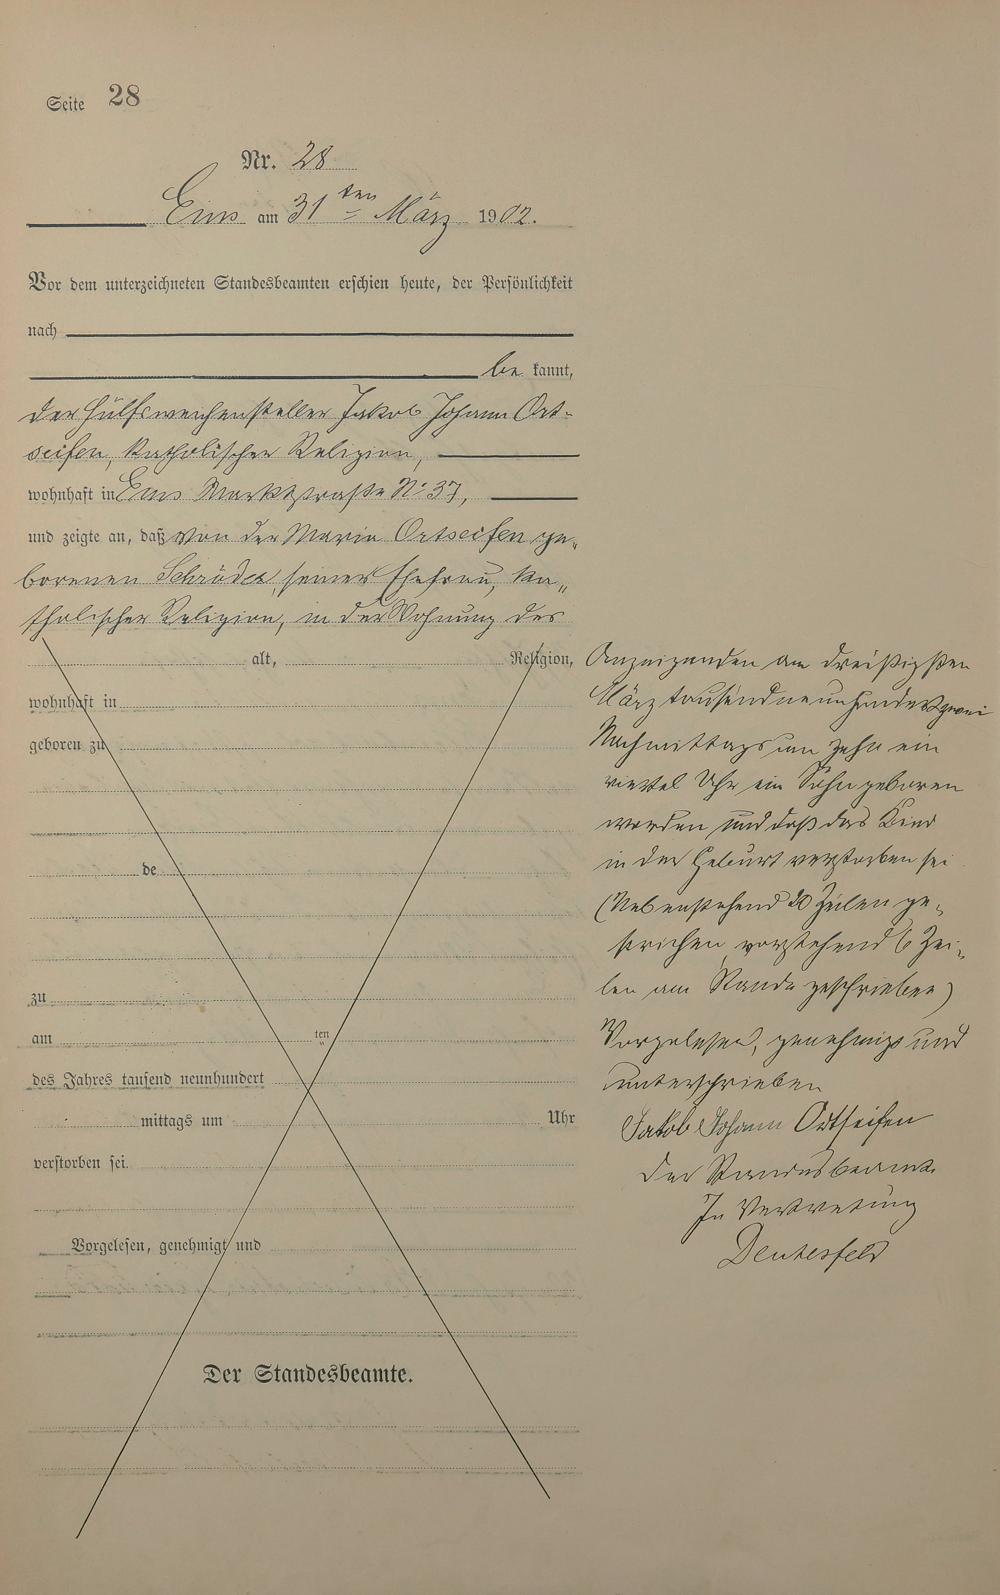 Seite 28
Nr. 28
Ems am 31ten März 1902.
Vor dem unterzeichneten Standesbeamten erschien heute, der Persönlichkeit
nach
be kannt,
der Hülfsweichensteller Jakob Johann Ort-
seifen, katholischer Religion,
wohnhaft in Ems Marktstraße No 37,
und zeigte an, daß von der Maria Ortseifen ge-
borenen Schröder, seiner Ehefrau, ka-
tholischer Religion, in der Wohnung des
alt, Religion,
wohnhaft in
geboren zu
de
zu
am ten
des Jahres tausend neunhundert
mittags um Uhr
verstorben sei.
Vorgelesen, genehmigt und
Der Standesbeamte.
Anzeigenden am dreißigsten
März tausendneunhundertzwei
Nachmittags um zehn ein
viertel Uhr ein Sohn geboren
worden und daß das Kind
in der Geburt verstorben sei
(Nebenstehend 20 Zeilen ge-
strichen, vorstehend 6 Zei-
len am Rande geschrieben)
Vorgelesen, genehmigt und
unterschrieben
Jakob Johann Ortseifen
Der Standesbeamte
In Vertretung
Deutesfeld